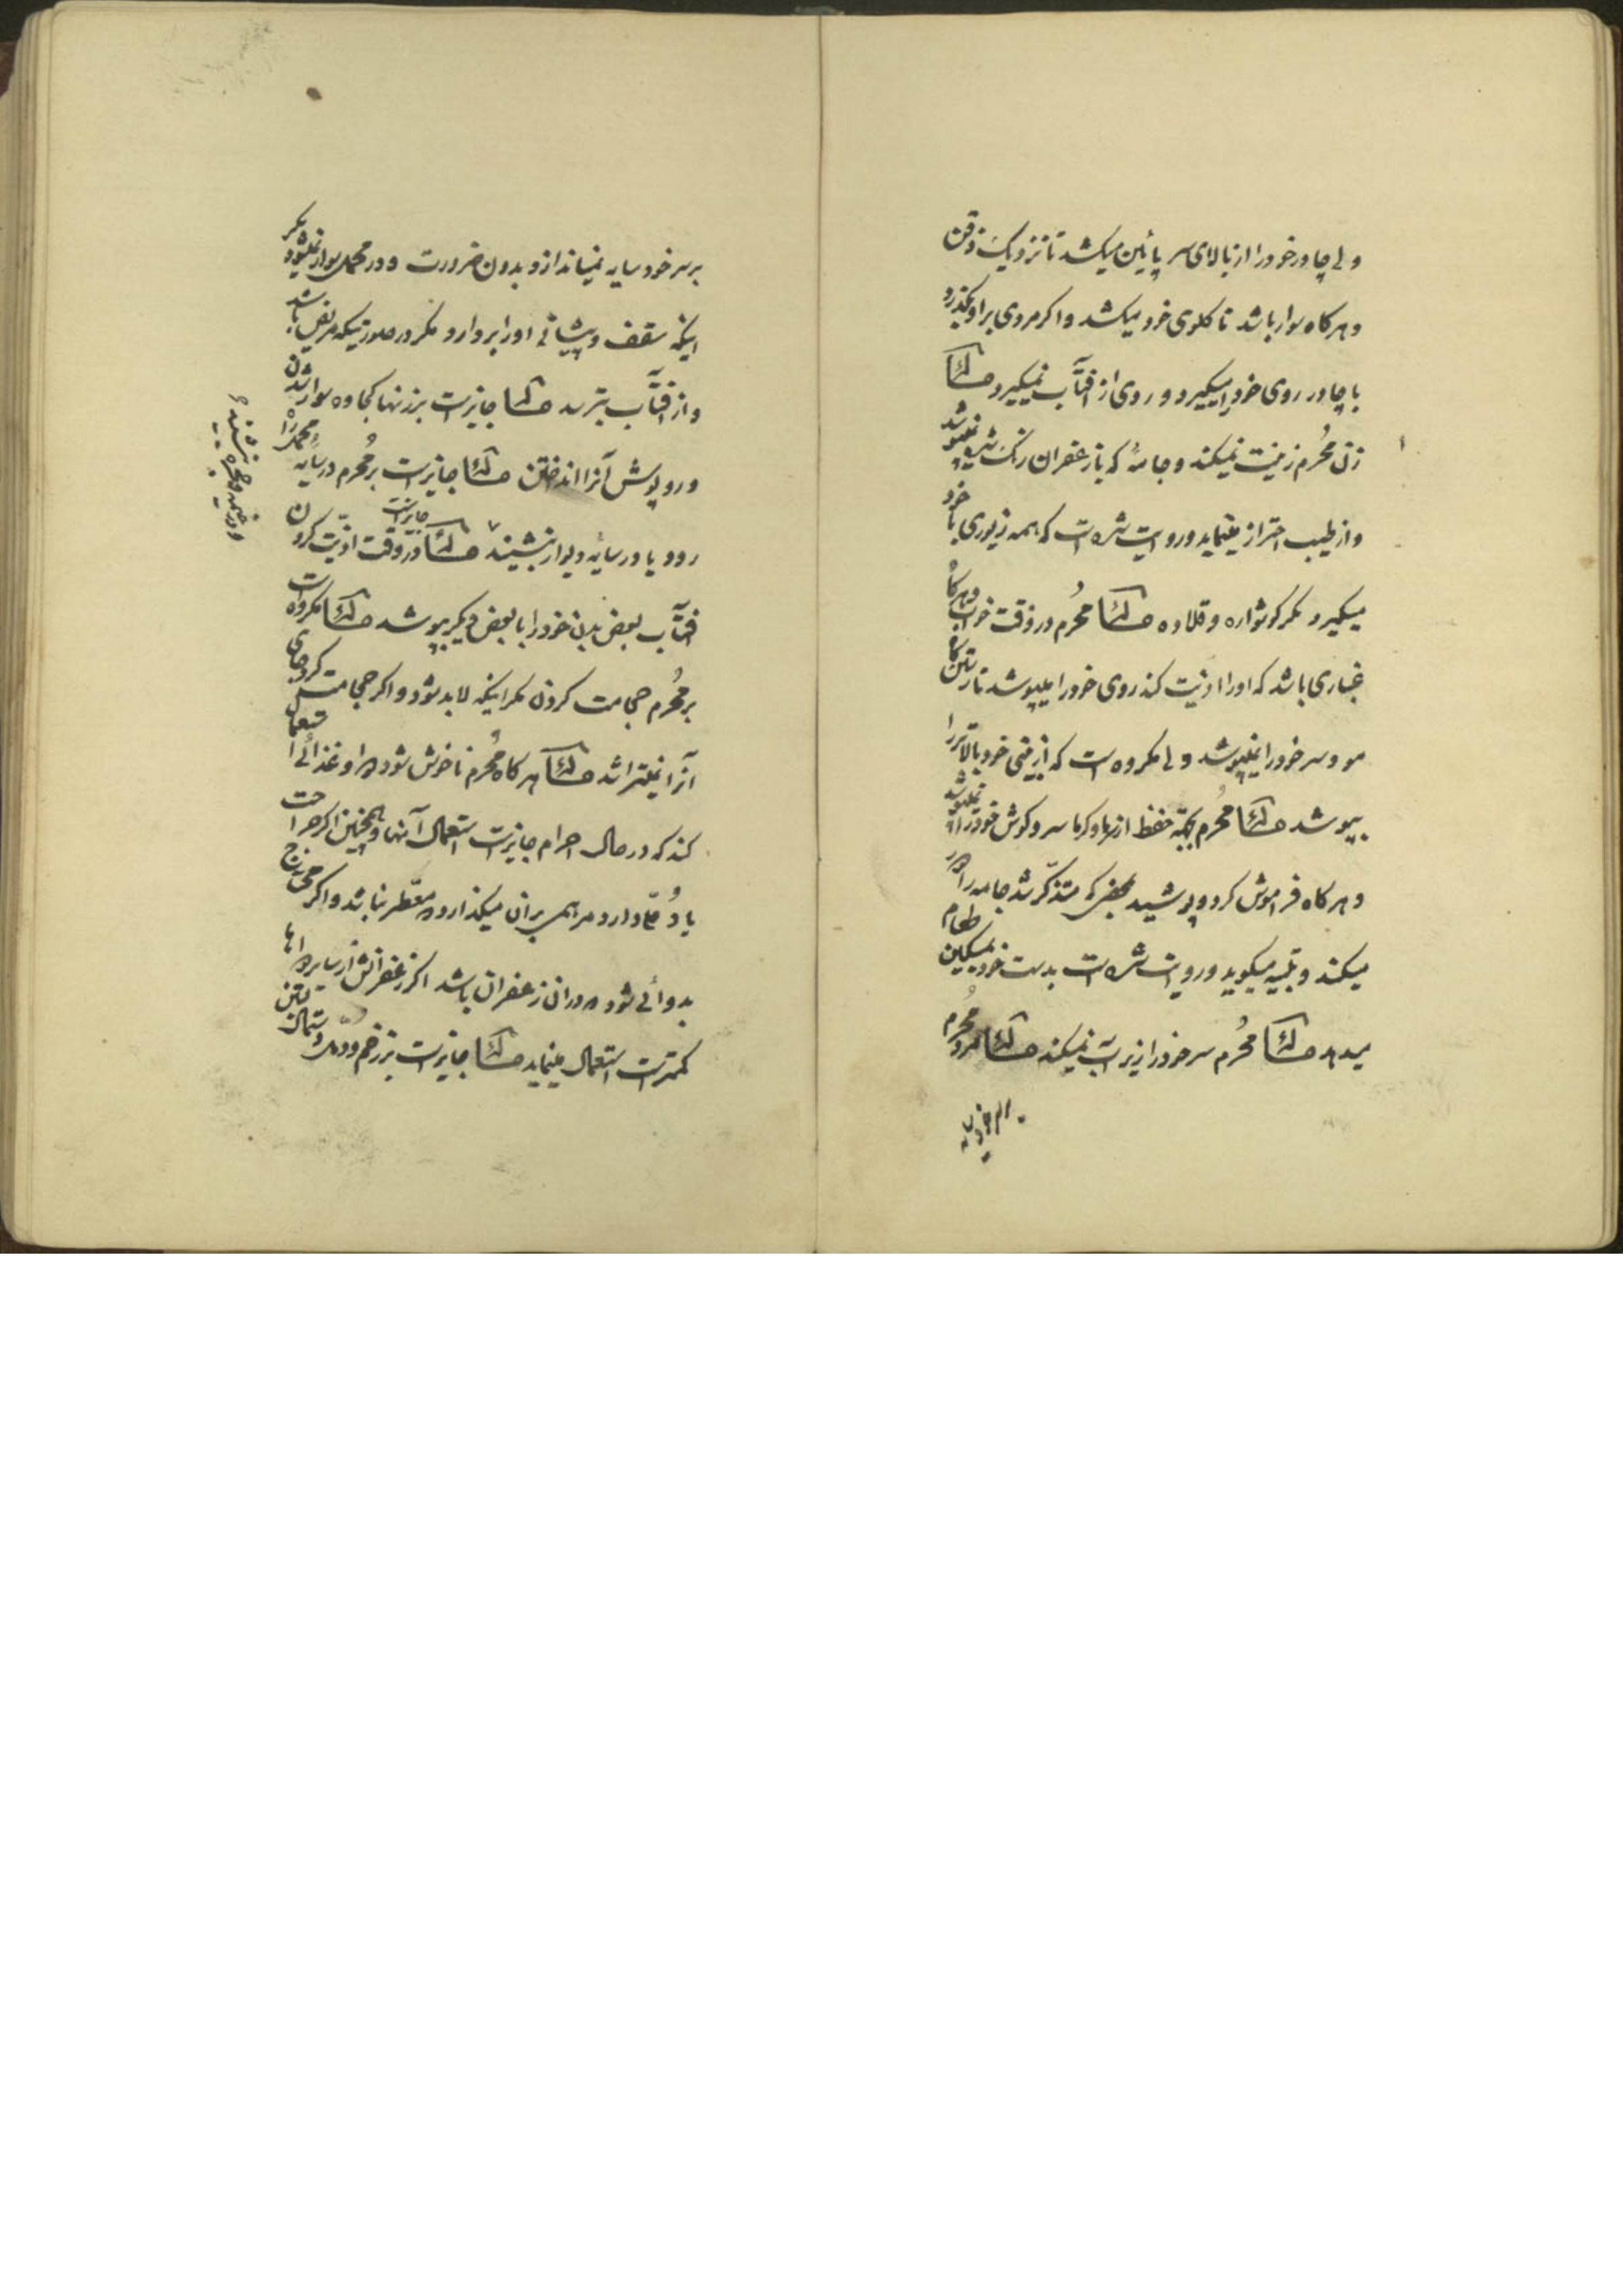 ولی چادر خود را از بالای سر پائین میکشد تا نزدیک ذقن
و هر کاه سوار باشد تا کلوی خود میکشد و اکر مردی بر او بکذرد
با چادر روی خود را میکیرد و روی از افتاب نمیکیرد مسئله
زن محرم زینت نمیکند و جامهٔ که با زعفران رنک شده نمیپوشد
و از طیب احتراز مینماید و روایت شده است که همه زیوری با خود
میکیرد مکر کوشواره و قلاده مسئله محرم در وقت خواب و هرکاه
غباری باشد که او را اذیت کند روی خود را میپوشد تا رستن کاه
مو و سر خود را نمیپوشد ولی مکروه است که از بینی خود بالاتر را
بپوشد مسئله محرم بجهة حفظ از سرما و کرما سر و کوش خود را نمیپوشد
و هر کاه فراموش کرد و پوشید بمحض که متذکر شد جامه را دور
میکند و تلبیه میکوید و روایت شده است بدست خود بمسکین طعام
میدهد مسئله محرم سر خود را زیر آب نمیکند مسئله مرد محرم
بر سر خود سایه نمیاندازد بدون ضرورت و در محمل سوار نمیشود مکر
اینکه سقف و پیشانی او را بردارد مکر در صورتیکه مریض باشد
و از افتاب بترسد مسئله جایزست بر زنها کجاوه سوار شدن
و روپوش آنرا انداختن مسئله جایزست بر محرم در سایهٔ محمل راه
رود یا در سایهٔ دیوار بنشیند مسئله جایزست در وقت اذیت کردن
افتاب بعض بدن خود را با بعض دیکر بپوشد مسئله مکروه است
بر محرم حجامت کردن مکر اینکه لابد شود و اکر حجامت کرد جای
آنرا نمیتراشد مسئله هر کاه محرم ناخوش شود دوا و غذائی استعمال
کند که در حال احرام جایزست استعمال آنها و همچنین اکر جراحت
یا دُمّل دارد مرهم بران میکذارد معطر نباشد و اکر محتاج
بدوائی شود در ان زعفران باشد اکر زعفرانش از سایر دواها
کمترست استعمال مینماید مسئله جایزست بر زخم و دمل دستمال بستن